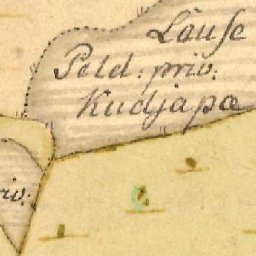 Lause
Peld: priv:
Kudjapæ
riv: